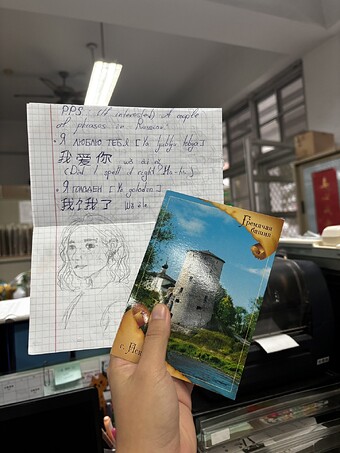 PPS (If interested) A couple
of phrases in Russian:
• Я ЛЮБЛЮ ТЕБЯ [Ya lyublyu tebya]
我 爱 你
(Did I spell it right? Ha-ha)
• Я ГОЛОДЕН [Ya goloden]
我 了
Гремячая
башня
г. Пск